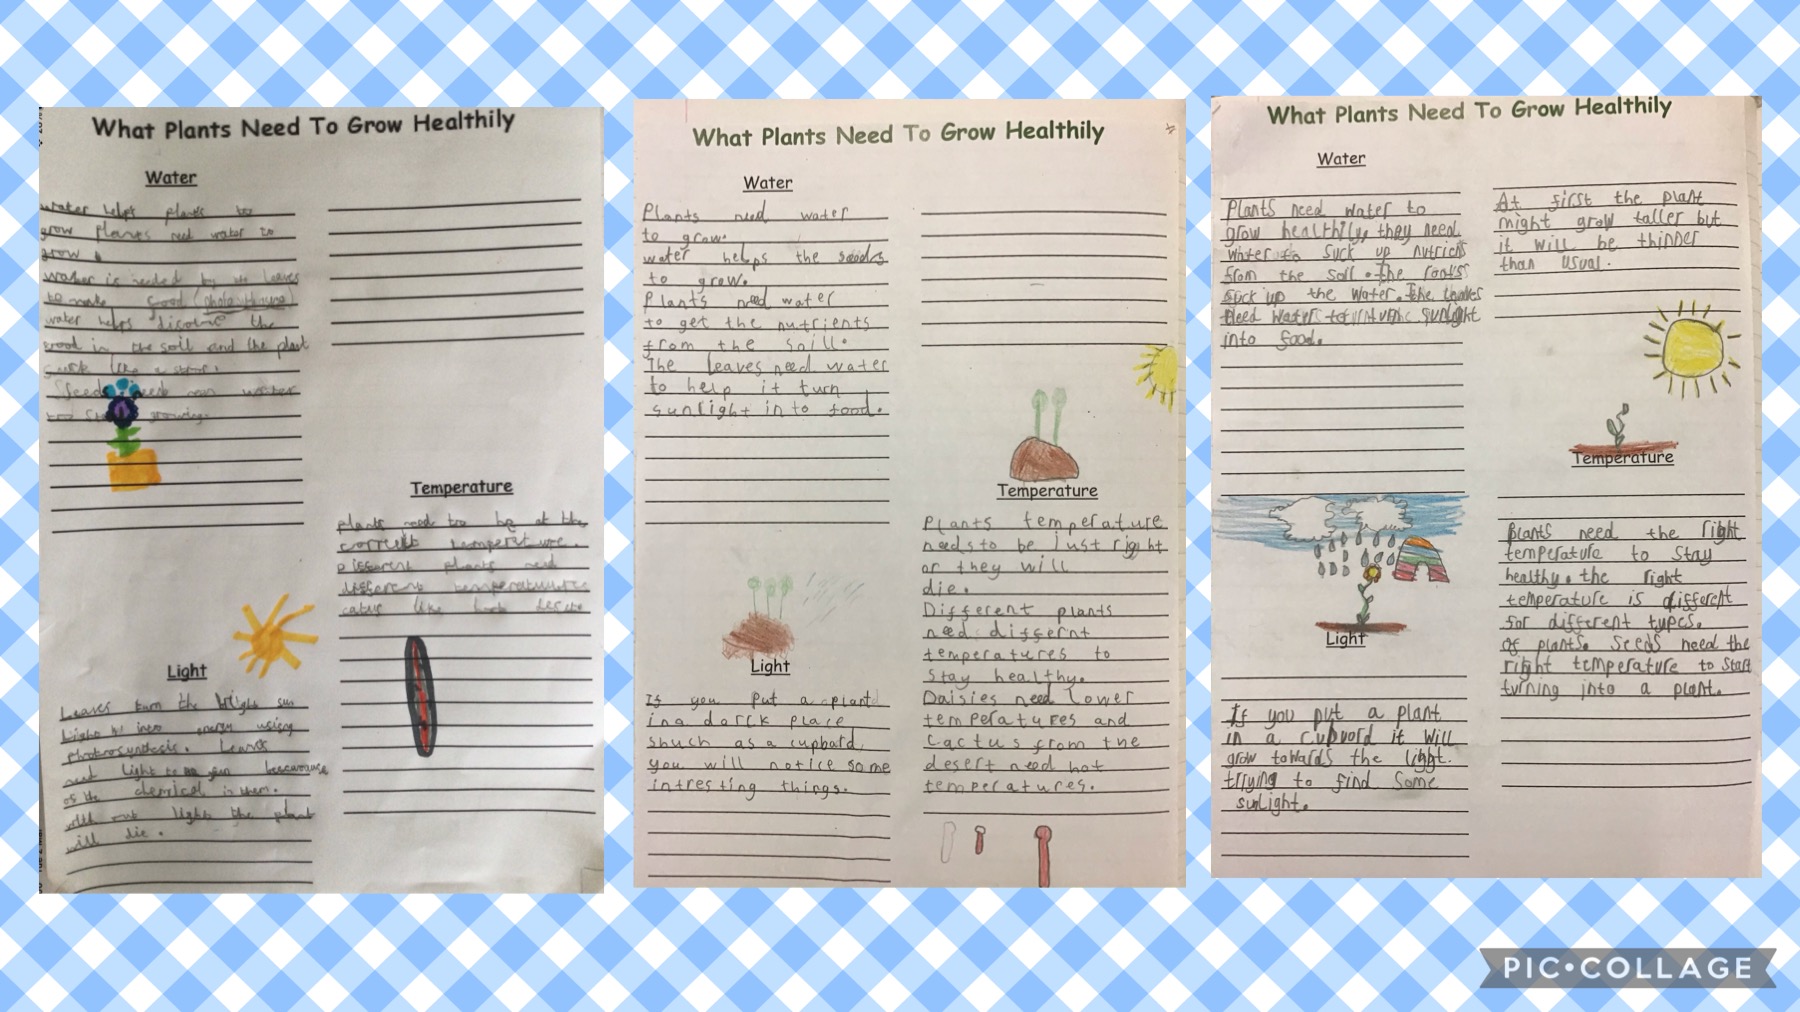 What Plants Need To Grow Healthily
Water
water helps plants to
grow plants need water to
grow
water is needed by the leaves
to make food
water helps disolve the
food in the soil and the plant
suck like a
Seeds need water
growing.
Light
Leaves turn the bright sun
Light into energy using
photosynthesis. Leaves
need light to
of the chemical in them.
with out light the plant
will die.
Temperature
plants need to be at the
correct temperature.
Different plants need
different
catus like hot
What Plants Need To Grow Healthily
Water
Plants need water
to grow.
water helps the seeds
to grow.
Plants need water
to get the nutrients
from the soill.
The leaves need water
to help it turn
sunlight in to food.
Light
If you put a plant
in a darck place
shuch as a cupbard
you will notice some
intresting things.
Temperature
Plants temperature
needs to be just right
or they will
die.
Different plants
need differnt
temperatures to
stay healthy.
Daisies need lower
temperatures and
Cactus from the
desert need hot
temperatures.
What Plants Need To Grow Healthily
Water
Plants need water to
grow healthily, they need
water to suck up
from the soil. the roots
suck up the water. The leaves
need water to turn the sunlight
into food.
Light
If you put a plant
in a cubvord it will
grow towards the light.
trying to find some
sunlight.
At first the plant
might grow taller but
it will be thinner
than usual.
Temperature
plants need the right
temperature to stay
healthy. the right
temperature is different
for different types.
of plants. seeds need the
right temperature to start
turning into a plant.
PIC•COLLAGE